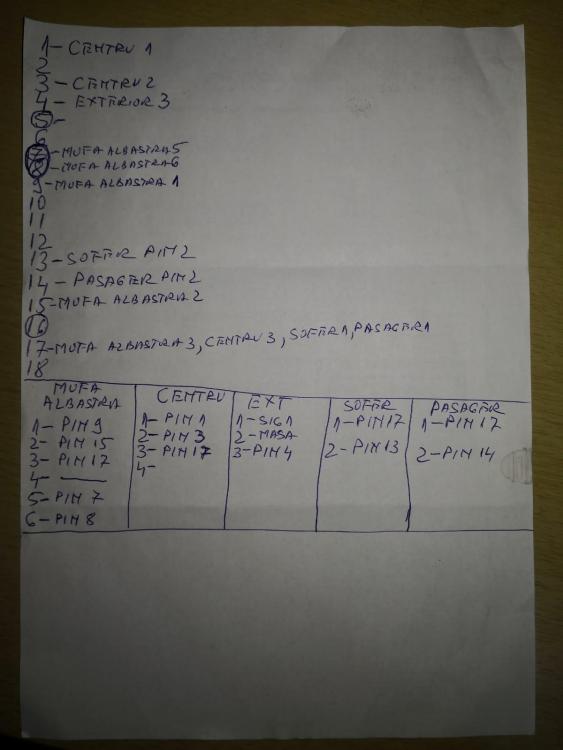 1- CENTRU 1
2
3- CENTRU 2
4- EXTERIOR 3
5-
6
7- MUFA ALBASTRA5
8- MUFA ALBASTRA6
9- MUFA ALBASTRA 1
10
11
12
13- SOFER PIN 2
14- PASAGER PIN 2
15- MUFA ALBASTRA 2
16
17- MUFA ALBASTRA 3, CENTRU 3, SOFER1, PASAGER1
18
MUFA ALBASTRA
1- PIN 9
2- PIN 15
3- PIN 17
4- —
5- PIN 7
6- PIN 8
CENTRU
1- PIN 1
2- PIN 3
3- PIN 17
4-
EXT
1- SIG 1
2- MASA
3- PIN 4
SOFER
1- PIN 17
2- PIN 13
PASAGER
1- PIN 17
2- PIN 14